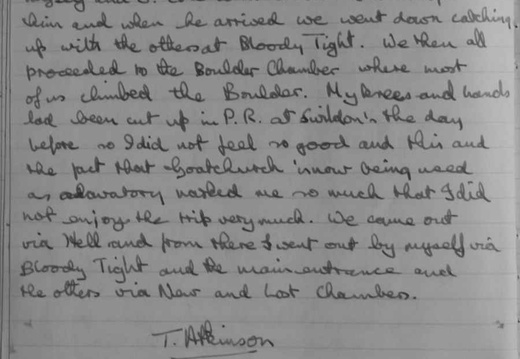 him and when he arrived we went down catching
up with the others at Bloody Tight. We then all
proceeded to the Boulder Chamber where most
of us climbed the Boulder. My knees and hands
had been cut up in P.R. at Swildon's the day
before so I did not feel so good and this and
the fact that Goatchurch is now being used
as a lavatory narked me so much that I did
not enjoy the trip very much. We came out
via Hell and from there I went out by myself via
Bloody Tight and the main entrance and
the others via New and Lost Chambers.
T. Atkinson